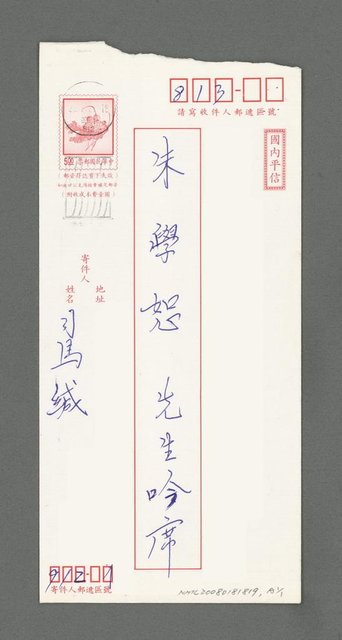 813-
請寫收件人郵遞區號
國內平信
朱學恕 先生吟席
5.00 中華民國郵票
寄件人
地址
姓名
司馬緘
802-
寄件人郵遞區號
NMTL20080181819,